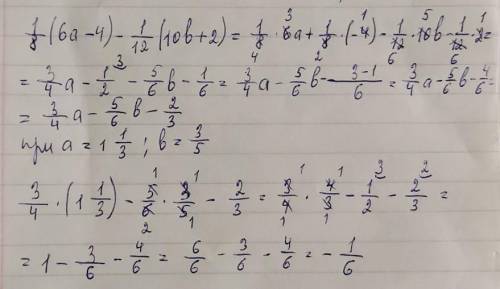 1/8 (6a-4) - 1/12 (10b+2) = 1/8 · 6a + 1/8 · (-4) - 1/12 · 10b - 1/12 · 2 =
= 3/4 a - 1/2 - 5/6 b - 1/6 = 3/4 a - 5/6 b - 3-1/6 = 3/4 a - 5/6 b - 4/6 =
= 3/4 a - 5/6 b - 2/3
при a = 1 1/3 ; b = 3/5
3/4 · (1 1/3) - 5/6 · 3/5 - 2/3 = 3/4 · 4/3 - 1/2 - 2/3 =
= 1 - 3/6 - 4/6 = 6/6 - 3/6 - 4/6 = - 1/6